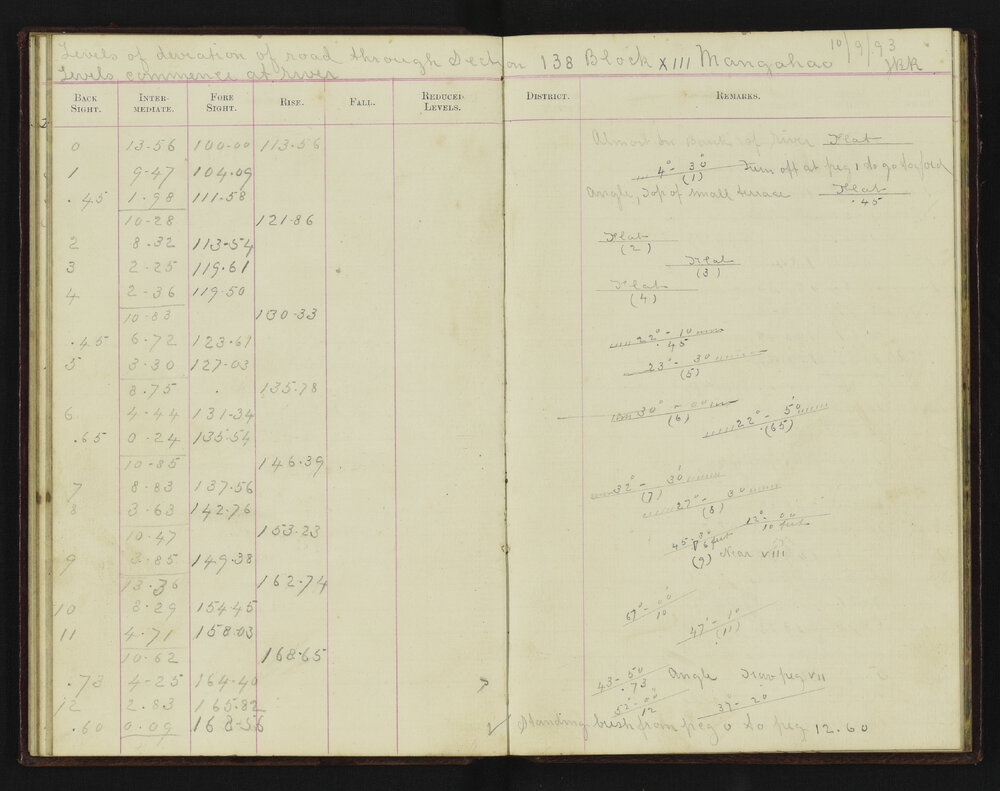 Levels of deviation of road through Section 138 Block XIII Mangahao 10/9/93
Levels commence at river
BACK SIGHT. INTER-MEDIATE. FORE SIGHT. RISE. FALL. REDUCED LEVELS. DISTRICT. REMARKS.
0 13.56 100.00 113.56 Almost on Bank of River Flat
1 9.47 104.09 4° - 30' (1) Turn off at peg 1 to go to ford
.45 1.98 111.58 Angle, Top of small terrace Flat .45
10.28 121.86
2 8.32 113.54 Flat (2)
3 2.25 119.61 Flat (3)
4 2.36 119.50 Flat (4)
10.83 130.33
.45 6.72 123.61 22° - 10 .45
5 3.30 127.03 23° - 30 (5)
8.75 135.78
6 4.44 131.34 30° - 00 (6)
.65 0.24 135.54 22° - 50' (.65)
10.85 146.39
7 8.83 137.56 32° - 30' (7)
8 3.63 142.76 27° - 30 (8)
10.47 153.23 12° - 00 10 feet
9 3.85 149.38 45 - 30 6 feet (9) Near VIII
13.36 162.74
10 8.29 154.45 67° - 00 10
11 4.71 158.03 47° - 10 (11)
10.62 168.65
.73 4.25 164.40 43 - 50 .73 Angle Trav peg VII
12 2.83 165.82 52° - 00 12 37° - 20
.60 0.09 168.56 Standing bush from peg 0 to peg 12.60